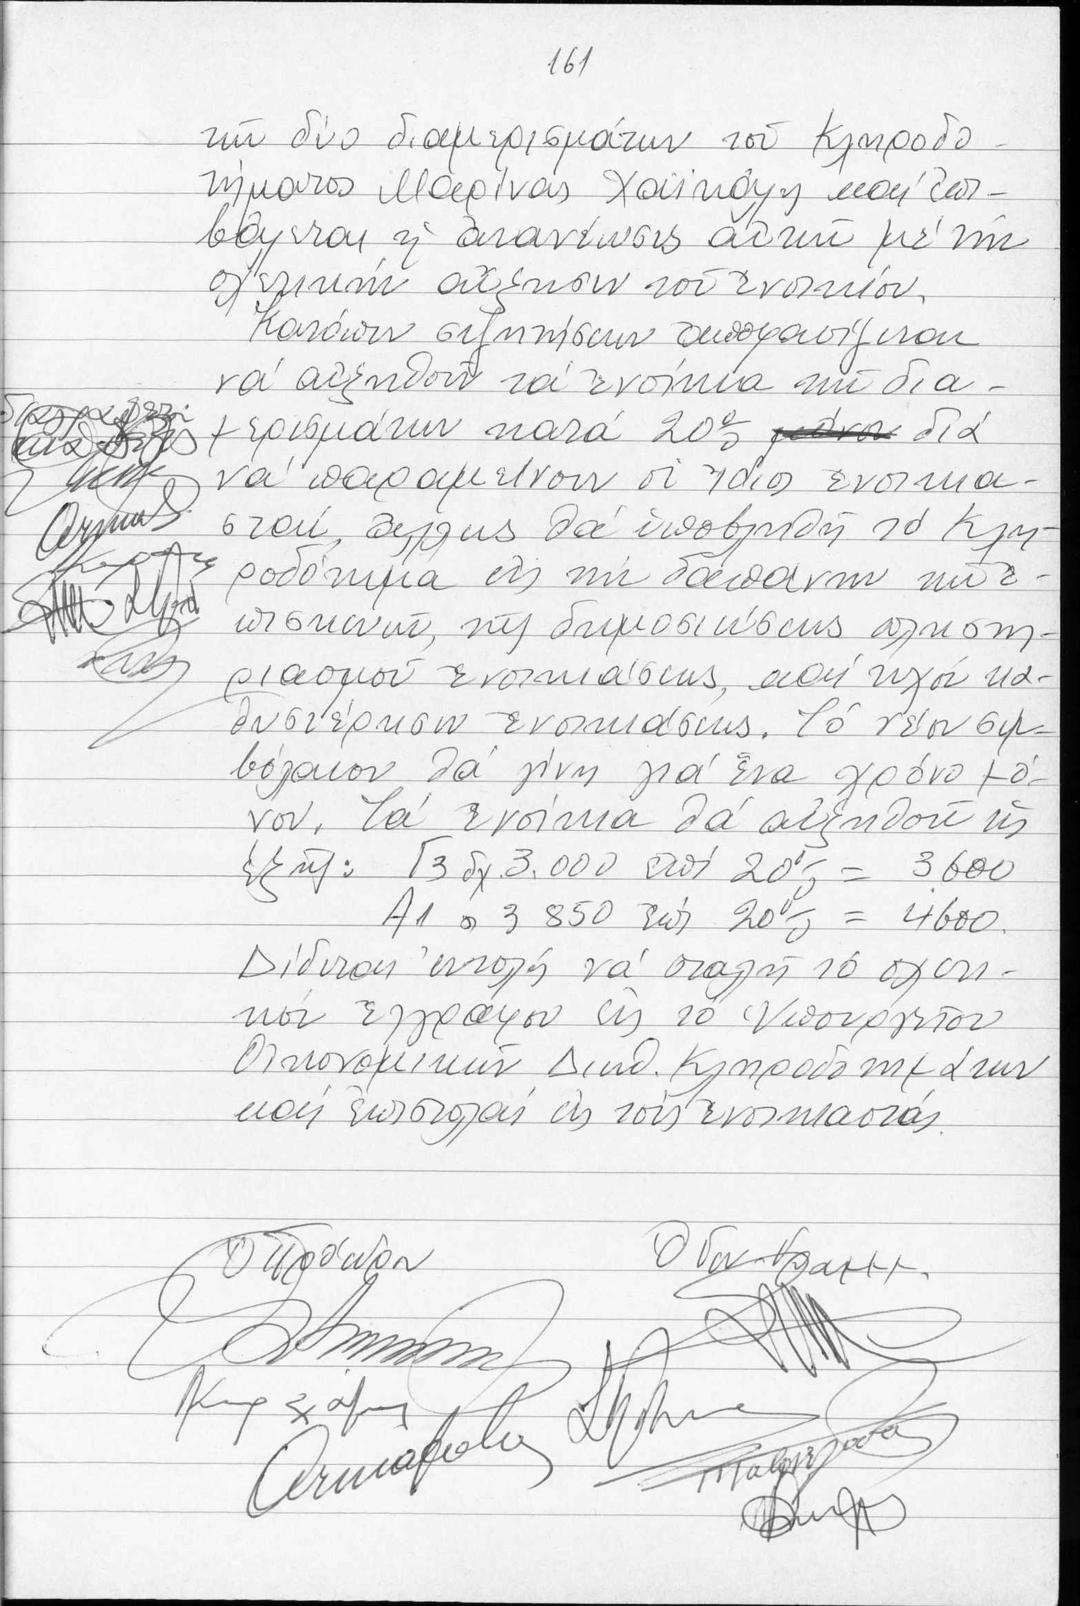 161
τῶν δύο διαμερισμάτων τοῦ Κληροδο-
τήματος Μαρίνας Χαϊκάλη καί ἐπι-
βάλεται ἡ ἀνανέωσις αὐτῶν μέ τήν
σχετικήν αὔξησιν τοῦ ἐνοικίου.
Κατόπιν συζητήσεων ἀποφασίζεται
νά αὐξηθοῦν τά ἐνοίκια τῶν δια-
μερισμάτων κατά 20% μόνον διά
νά παραμείνουν οἱ ἴδιοι ἐνοικια-
σταί, ἄλλως θά ὑποβληθῇ τό Κλη-
ροδότημα εἰς τήν δαπάνην τῶν ἐ-
πισκευῶν, τῆς δημοσιεύσεως πλειστη-
ριασμοῦ ἐνοικιάσεως, καί τυχόν κα-
θυστέρησιν ἐνοικιάσεως. Τό νέον συμ-
βόλαιον θά γίνῃ γιά ἕνα χρόνο μό-
νον. Τά ἐνοίκια θά αὐξηθοῦν ὡς
ἑξῆς: Γ3 δρχ. 3.000 ἐπί 20% = 3.600
Α1 " 3.850 ἐπί 20% = 4.600.
Δίδεται ἐντολή νά σταλῇ τό σχετι-
κόν ἔγγραφον εἰς τό Ὑπουργεῖον
Οἰκονομικῶν Διευθ. Κληροδοτημάτων
καί ἐπιστολαί εἰς τούς ἐνοικιαστάς.
Ὁ Πρόεδρος
Ὁ Γεν. Γραμμ.